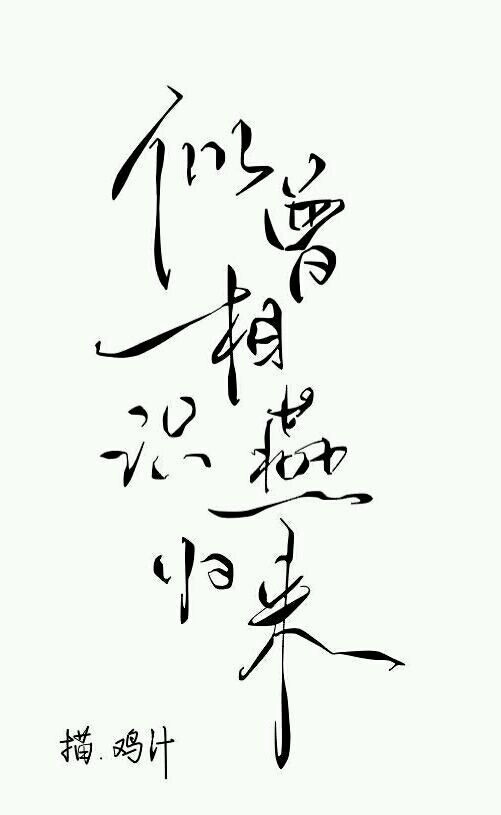 似曾
相
识燕
归来
描.鸡汁